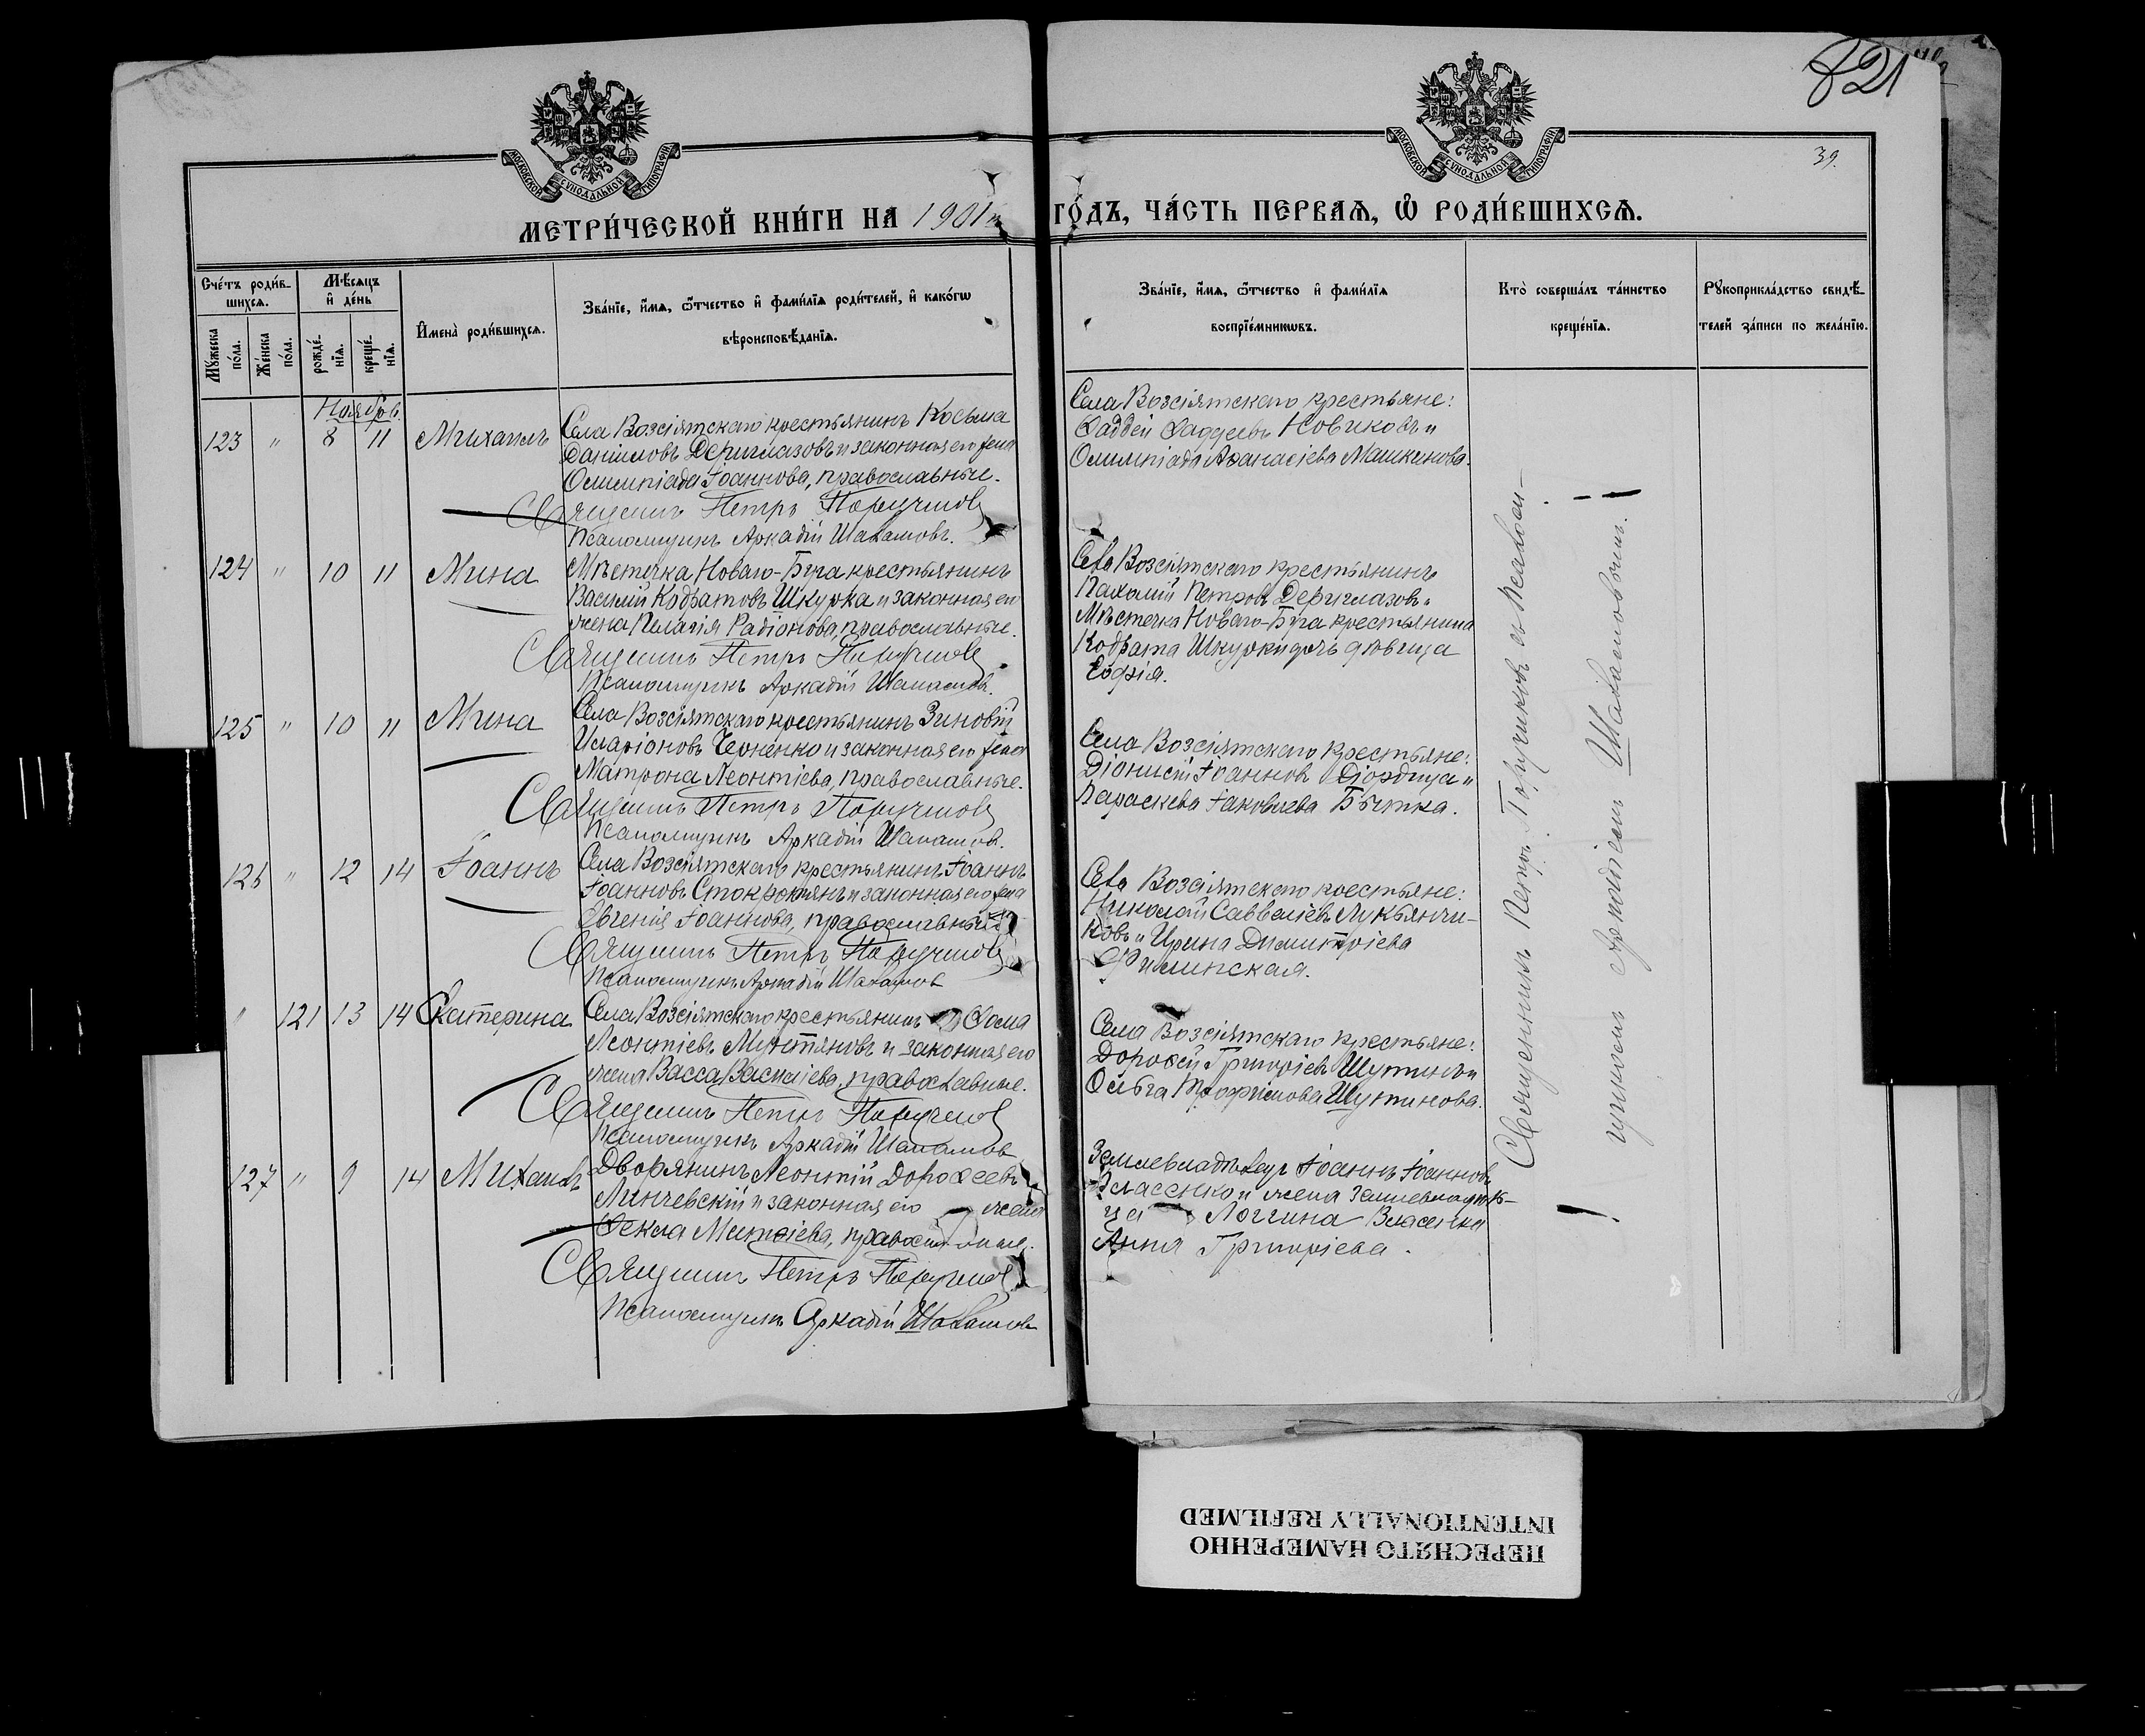 821
39.
МОСКОВСКОЙ СУНОДАЛЬНОЙ ТИПОГРАФІИ
МОСКОВСКОЙ СУНОДАЛЬНОЙ ТИПОГРАФІИ
МЕТРИ́ЧЕСКОЙ КНИ́ГИ НА 1901 й ГО́ДЪ, ЧА́СТЬ ПЕРВАѦ, Ѡ҆ РОДИ́ВШИХСѦ.
Сче́тъ роди́вшихсѧ.
Мꙋ́жеска по́ла.
Же́нска по́ла.
Мѣ́сѧцъ и҆ де́нь
рожде́нїѧ.
креще́нїѧ.
И҆мена̀ роди́вшихсѧ.
Зва́нїе, и҆́мѧ, ѻ҆́тчество и҆ фамѝлїѧ роди́телей, и҆ како́гѡ вѣроисповѣ́данїѧ.
Зва́нїе, и҆́мѧ, ѻ҆́тчество и҆ фамѝлїѧ воспрїе́мникѡвъ.
Кто̀ соверша́лъ та́инство креще́нїѧ.
Рꙋкоприкла́дство свидѣ́телей за́писи по жела́нїю.
Ноябрь
123 " 8 11 Михаилъ
Села Возсіятскаго крестьянинъ Косьма
Даніиловъ Дериглазовъ и законная его жена
Олимпіада Іоаннова, православные.
Священникъ Петръ Поручиковъ
Псаломщикъ Аркадій
Села Возсіятскаго крестьяне:
Фаддей Фаддеевъ Новиковъ и
Олимпіада Аѳанасіева Машкинова.
124 " 10 11 Мина
Мѣстечка Новаго-Буга крестьянинъ
Василій Кодратовъ Шкурка и законная его
жена Пелагія Радіонова, православные.
Священникъ Петръ Поручиковъ
Псаломщикъ Аркадій
Села Возсіятскаго крестьянинъ
Пахомій Петровъ Дериглазовъ и
Мѣстечка Новаго-Буга крестьянина
Кодрата Шкурки дочь дѣвица
Софія.
125 " 10 11 Мина
Села Возсіятскаго крестьянинъ Зиновій
Иларіоновъ Черненко и законная его жена
Матрона Леонтіева, православные.
Священникъ Петръ Поручиковъ
Псаломщикъ Аркадій
Села Возсіятскаго крестьяне:
Діонисій Іоанновъ Діордица и
Параскева Іаковлева Бытка.
126 " 12 14 Іоаннъ
Села Возсіятскаго крестьянинъ Іоаннъ
Іоанновъ и законная его жена
Евгенія Іоаннова, православные.
Священникъ Петръ Поручиковъ
Псаломщикъ Аркадій
Села Возсіятскаго крестьяне:
Николай Савеліевъ Лукьянчи-
ковъ и Ирина Димитріева
" 121 13 14 Екатерина
Села Возсіятскаго крестьянинъ Ѳома
Леонтіевъ Мунтяновъ и законная его
жена Васса Василіева, православные.
Священникъ Петръ Поручиковъ
Псаломщикъ Аркадій
Села Возсіятскаго крестьяне:
Дороѳей Григоріевъ Шутинъ и
Ольга Трофимова Шутинова.
127 " 9 14 Михаилъ
Дворянинъ Леонтій Дороѳеевъ
Линчевскій и законная его жена
Ѳекла Матѳіева, православные.
Священникъ Петръ Поручиковъ
Псаломщикъ Аркадій
Землевладѣлецъ Іоаннъ Іоанновъ
Власенко и жена землевладѣль-
ца Логгина Власенка
Анна Григоріева.
Священникъ Петръ Поручиковъ съ Псалом-
щикомъ Аркадіемъ
ПЕРЕСНЯТО НАМЕРЕННО
INTENTIONALLY REFILMED